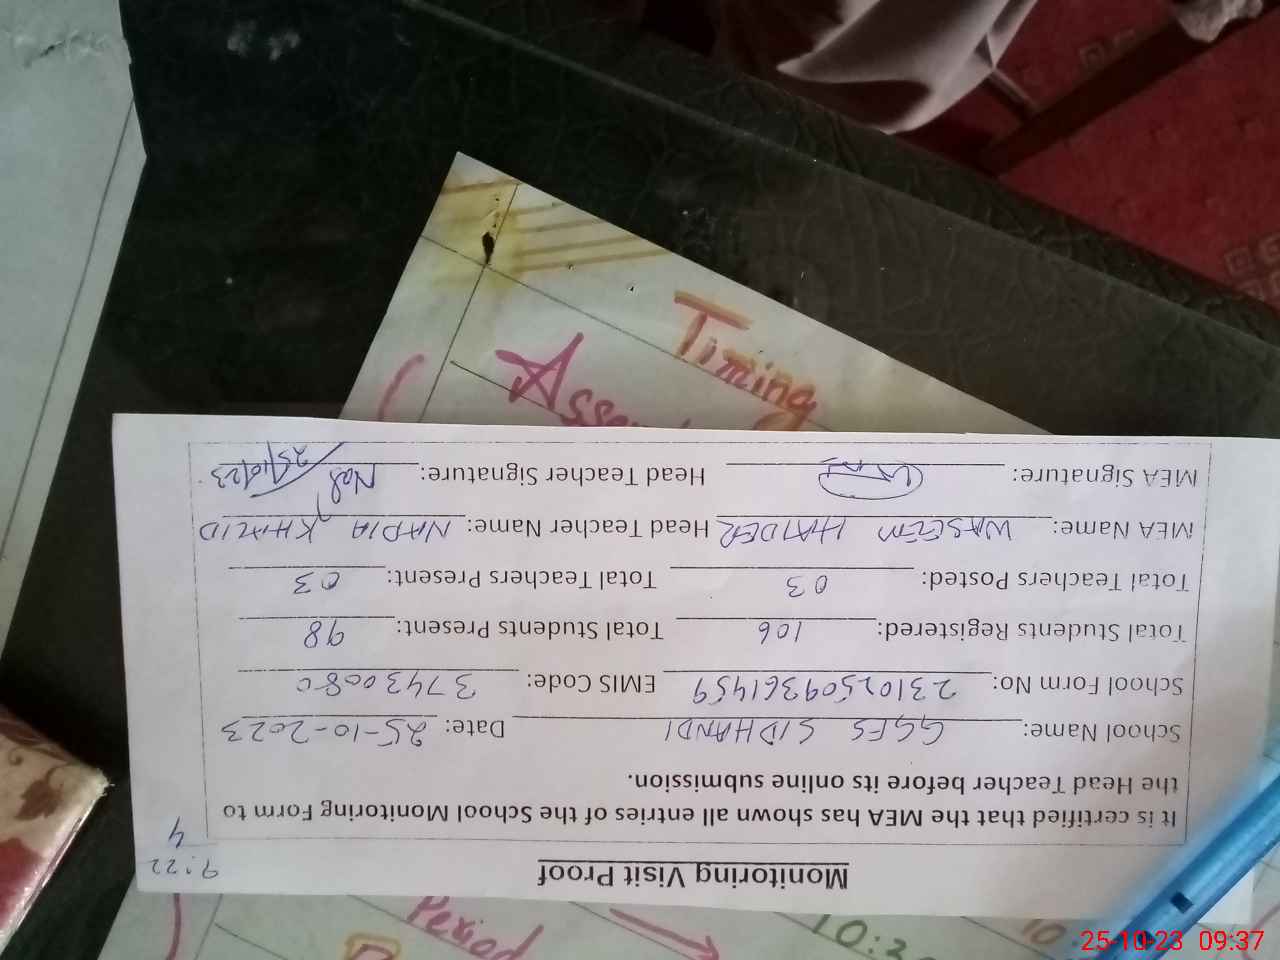 Monitoring Visit Proof
9:22
4
It is certified that the MEA has shown all entries of the School Monitoring Form to
the Head Teacher before its online submission.
School Name: GGES SIDHANDI Date: 25-10-2023
School Form No: 23102509361459 EMIS Code: 37430080
Total Students Registered: 106 Total Students Present: 98
Total Teachers Posted: 03 Total Teachers Present: 03
MEA Name: WASEEM HAIDER Head Teacher Name: NADIA KHALID
MEA Signature: Head Teacher Signature: 25/10/23
Timing
Period
25-10-23 09:37